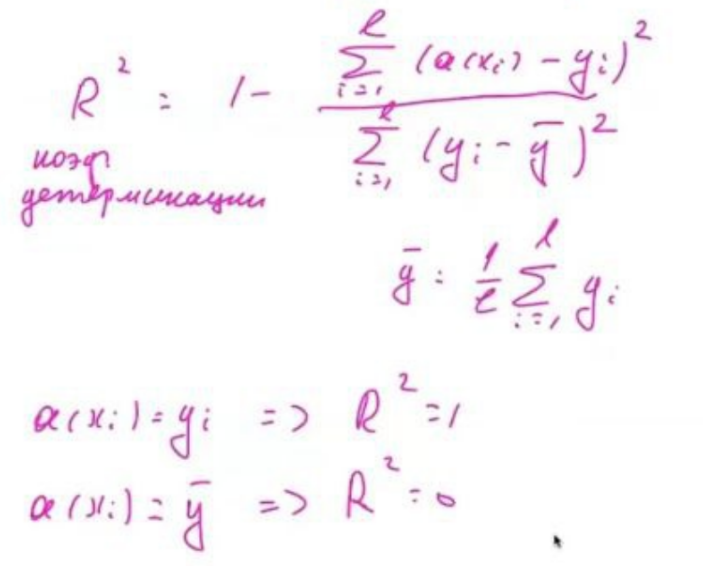 R² = 1 - \frac{\sum_{i=1}^{\ell} (a(x_i) - y_i)^2}{\sum_{i=1}^{\ell} (y_i - \bar{y})^2}
коэф
детерминации
\bar{y} = \frac{1}{\ell} \sum_{i=1}^{\ell} y_i
a(x_i) = y_i => R² = 1
a(x_i) = \bar{y} => R² = 0